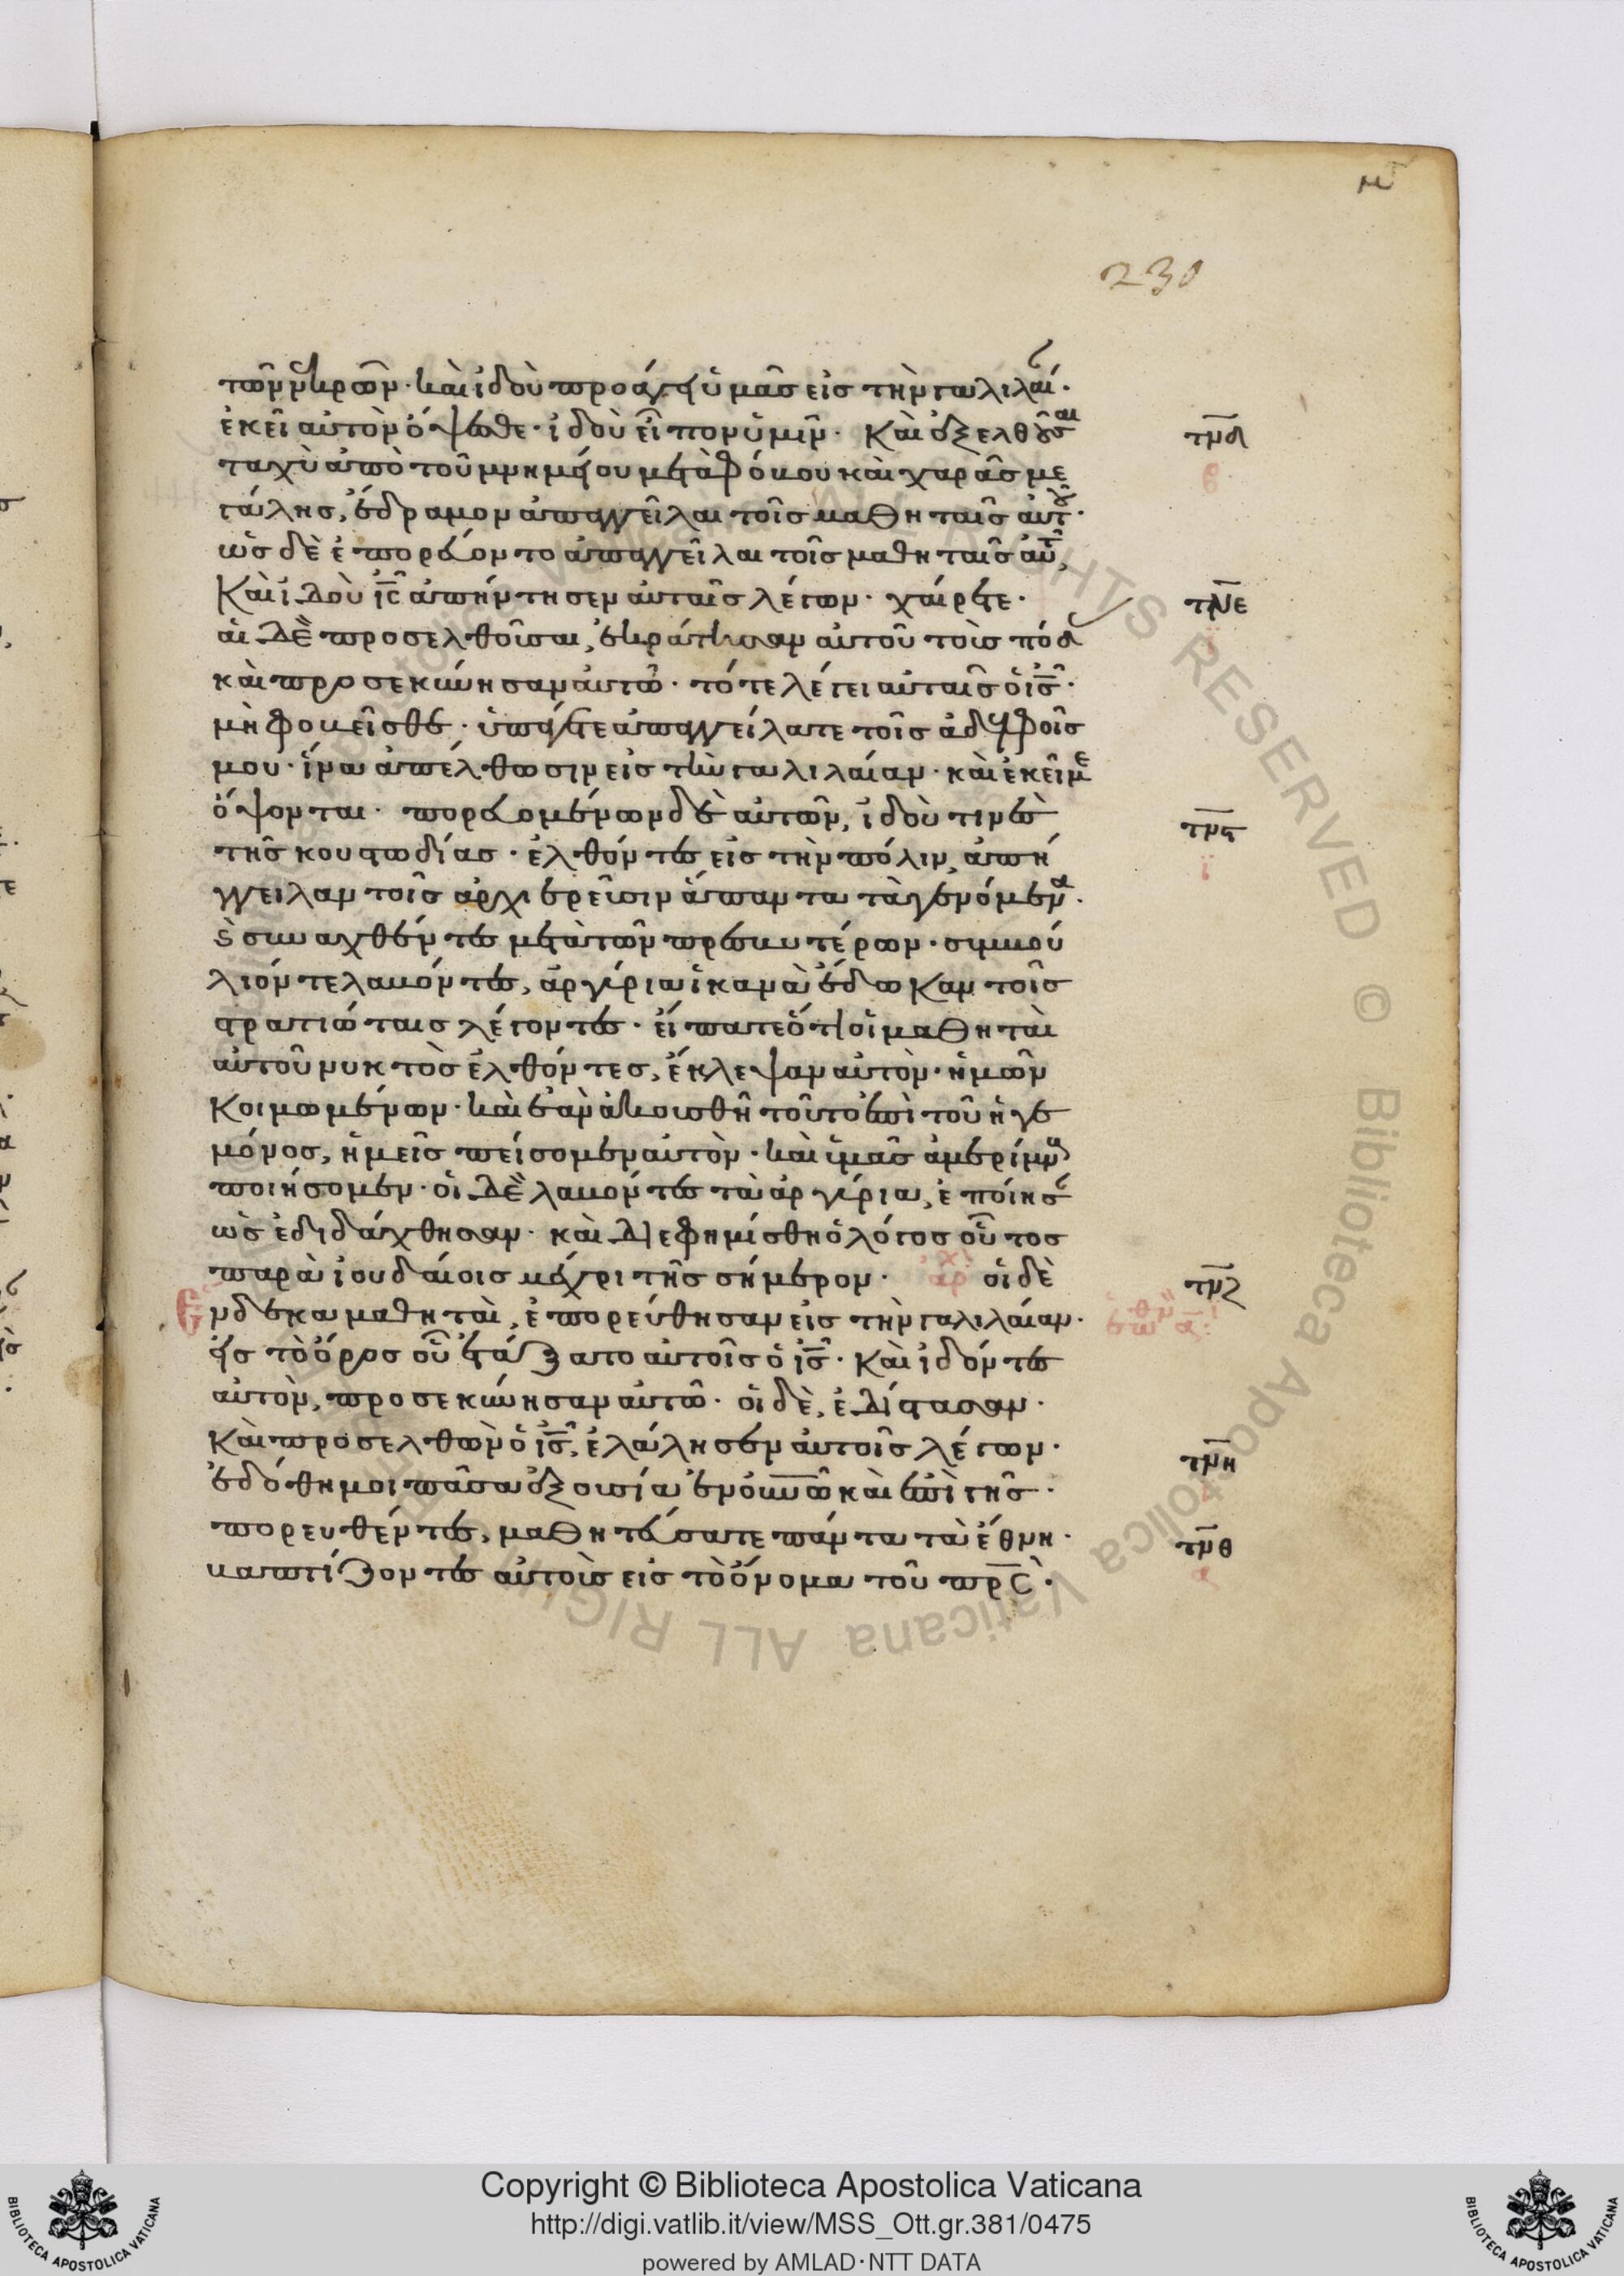 230
τῶν νεκρῶν· καὶ ἰδοὺ προάγει ὑμᾶς εἰς τὴν γαλιλαί·
ἐκεῖ αὐτὸν ὄψεσθε· ἰδοὺ εἶπον ὑμῖν· Καὶ ἐξελθοῦσαι
τμδ
ταχὺ ἀπὸ τοῦ μνημείου μετὰ φόβου καὶ χαρᾶς με
β
γάλης, ἔδραμον ἀπαγγεῖλαι τοῖς μαθηταῖς αὐτοῦ·
ὡς δὲ ἐπορεύοντο ἀπαγγεῖλαι τοῖς μαθηταῖς αὐτοῦ,
Καὶ ἰδοὺ ις ἀπήντησεν αὐταῖς λέγων· χαίρετε·
τμε
αἱ δὲ προσελθοῦσαι, ἐκράτησαν αὐτοῦ τοὺς πόδ
ι
καὶ προσεκύνησαν αὐτῷ· τότε λέγει αὐταῖς ὁ ις·
μὴ φοβεῖσθε· ὑπάγετε ἀπαγγείλατε τοῖς ἀδελφοῖς
μου· ἵνα ἀπέλθωσιν εἰς τὴν γαλιλαίαν· καὶ ἐκεῖ με
ὄψονται· πορευομένων δὲ αὐτῶν, ἰδοὺ τινὲς
τμϛ
τῆς κουστωδίας· ἐλθόντες εἰς τὴν πόλιν, ἀπή
ι
γγειλαν τοῖς ἀρχιερεῦσιν ἅπαντα τὰ γενόμενα·
ϗ συναχθέντες μετὰ τῶν πρεσβυτέρων· συμβού
λιόν τε λαβόντες, ἀργύρια ἱκανὰ ἔδωκαν τοῖς
στρατιώταις λέγοντες· εἴπατε ὅτι οἱ μαθηταὶ
αὐτοῦ νυκτὸς ἐλθόντες, ἔκλεψαν αὐτὸν· ἡμῶν
Κοιμωμένων· καὶ ἐὰν ἀκουσθῆ τοῦτο ἐπὶ τοῦ ἡγε
μόνος, ἡμεῖς πείσομεν αὐτὸν· καὶ ὑμᾶς ἀμερίμν
ποιήσομεν· οἱ δὲ λαβόντες τὰ ἀργύρια, ἐποίησ
ὡς ἐδιδάχθησαν· καὶ διεφημίσθη ὁ λόγος οὗτος
παρὰ ἰουδαίοις μέχρι τῆς σήμερον· ἀρχὶ οἱ δὲ
τμζ
Ενδεκα μαθηταὶ, ἐπορεύθησαν εἰς τὴν γαλιλαίαν·
εἰς τὸ ὄρος οὗ ἐτάξατο αὐτοῖς ὁ ις· Καὶ ἰδόντες
αὐτὸν, προσεκύνησαν αὐτῷ· οἱ δὲ, ἐδίστασαν·
Καὶ προσελθὼν ὁ ις, ἐλάλησεν αὐτοῖς λέγων·
τμη
ἐδόθη μοι πᾶσα ἐξουσία ἐν οὐνῶ καὶ ἐπὶ γῆς·
πορευθέντες, μαθητεύσατε πάντα τὰ ἔθνη·
τμθ
βαπτίζοντες αὐτοὺς εἰς τὸ ὄνομα τοῦ πρς·
Copyright © Biblioteca Apostolica Vaticana
http://digi.vatlib.it/view/MSS_Ott.gr.381/0475
powered by AMLAD·NTT DATA